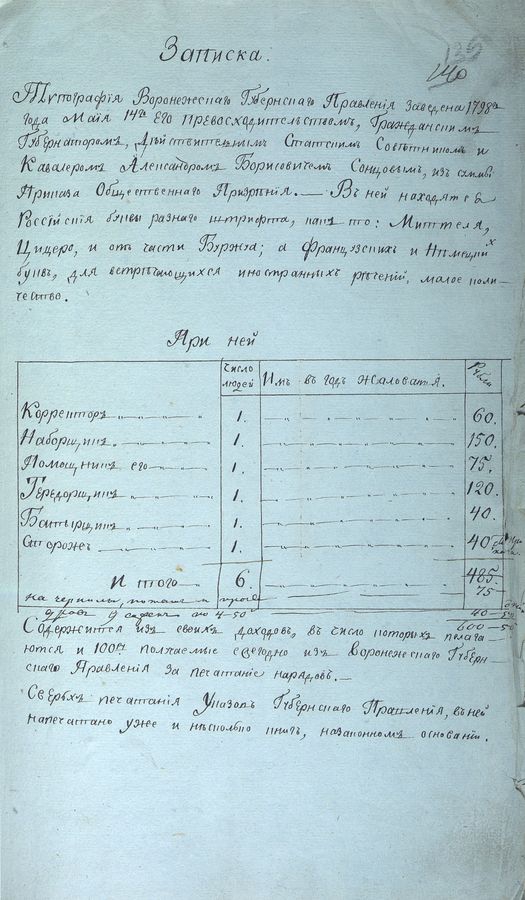 Записка.
140
Типографія Воронежскаго Губернскаго Правленія заведена 1798го
года Маія 14го Его Превосходительствомъ, Гражданскимъ
Губернаторомъ, Дѣйствительнымъ Статскимъ Совѣтникомъ и
Кавалеромъ Александромъ Борисовичемъ Сонцовымъ, изъ суммы
Приказа Общественнаго Призрѣнія. — Въ ней находятся
Россійскія буквы разнаго штрифта, какъ то: Миттель,
Цицеро, и отъ части Буржуа; а Французскихъ и Нѣмецкихъ
буквъ, для встрѣчающихся иностранныхъ рѣченій, малое коли-
чество.
При ней
Число людей Имъ въ годъ жалованья. Рубли
Корректоръ 1. 60.
Наборщикъ 1. 150.
Помощникъ его 1. 75.
Тередорщикъ 1. 120.
Батырщикъ 1. 40.
Сторожъ 1. 40
Итого 6. 485.
на чернилы, 75
дровъ 9 сажен по 4-50 40
600
Содержится изъ своихъ доходовъ, въ число которыхъ полага-
ются и 100 получаемые ежегодно изъ Воронежскаго Губерн-
скаго Правленія за печатаніе нарядовъ. —
Сверьхъ печатанія Указовъ Губернскаго Правленія, въ ней
напечатано уже и нѣсколько книгъ, на законномъ основаніи.